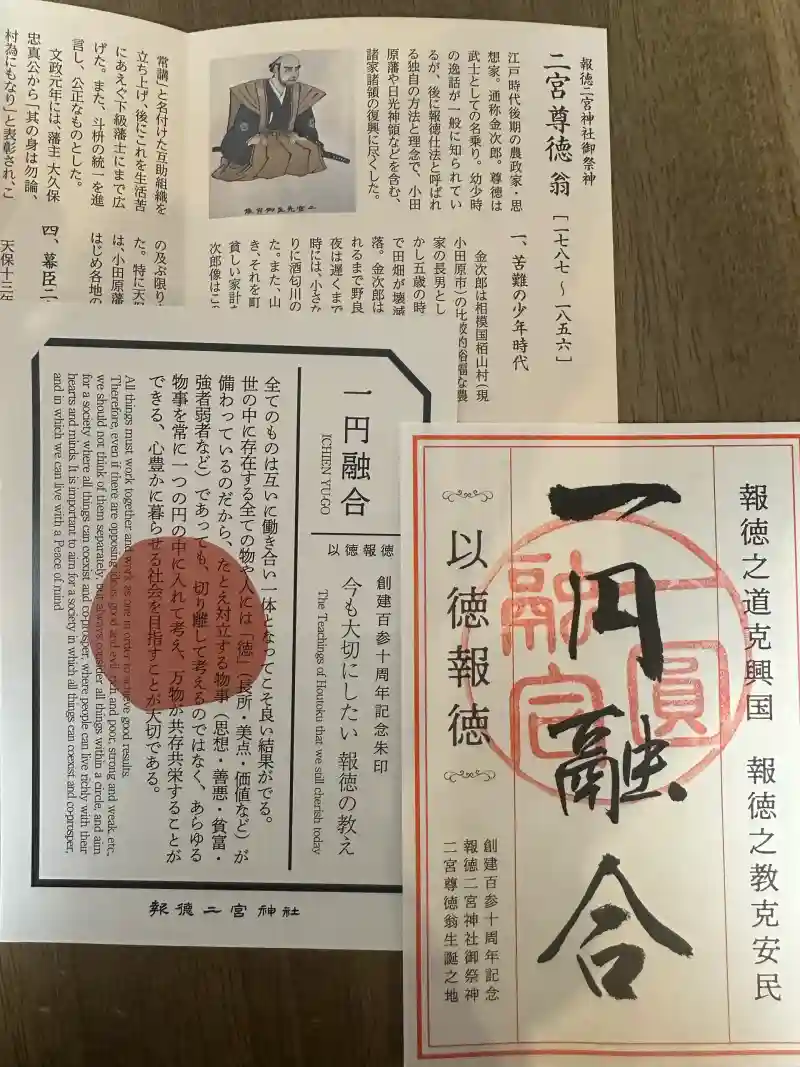 報徳二宮神社御祭神
二宮尊徳 翁 [一七八七 〜 一八五六]
江戸時代後期の農政家・思
想家。通称金次郎。尊徳は
武士としての名乗り。幼少時
の逸話が一般に知られてい
るが、後に報徳仕法と呼ばれ
る独自の方法と理念で、小田
原藩や日光神領などを含む、
諸家諸領の復興に尽くした。
一、苦難の少年時代
金次郎は相模国栢山村(現
小田原市)の比較的裕福な農
家の長男とし
かし五歳の時
で田畑が壊滅
落。金次郎は
れるまで野良
夜は遅くまで
時には、小さな
りに酒匂川の
た。また、山
き、それを町
貧しい家計を
次郎像はこ
常講」と名付けた互助組織を
立ち上げ、後にこれを生活苦
にあえぐ下級藩士にまで広
げた。また、斗枡の統一を進
言し、公正なものとした。
文政元年には、藩主 大久保
忠真公から「其の身は勿論、
村為にもなり」と表彰され、こ
の及ぶ限り
た。特に天
は、小田原藩
はじめ各地の
四、幕臣二
天保十三年
一円融合
ICHIEN YU-GO
以徳報徳
創建百参十周年記念朱印
今も大切にしたい 報徳の教え
The Teachings of Houtoku that we still cherish today
全てのものは互いに働き合い一体となってこそ良い結果がでる。
世の中に存在する全ての物や人には「徳」(長所・美点・価値など)が
備わっているのだから、たとえ対立する物事(思想・善悪・貧富・
強者弱者など)であっても、切り離して考えるのではなく、あらゆる
物事を常に一つの円の中に入れて考え、万物が共存共栄することが
できる、心豊かに暮らせる社会を目指すことが大切である。
All things must work together and work as one in order to achieve good results.
Therefore, even if there are opposing ideas, good and evil, rich and poor, strong and weak, etc.,
we should not think of them separately but always consider all things within a circle, and aim
for a society where all things can coexist and co-prosper, where people can live richly with their
hearts and minds. It is important to aim for a society in which all things can coexist and co-prosper,
and in which we can live with a Peace of mind.
報徳二宮神社
報徳之道克興国 報徳之教克安民
一円融合
一圓融合
以徳報徳
創建百参十周年記念
報徳二宮神社御祭神
二宮尊徳翁生誕之地